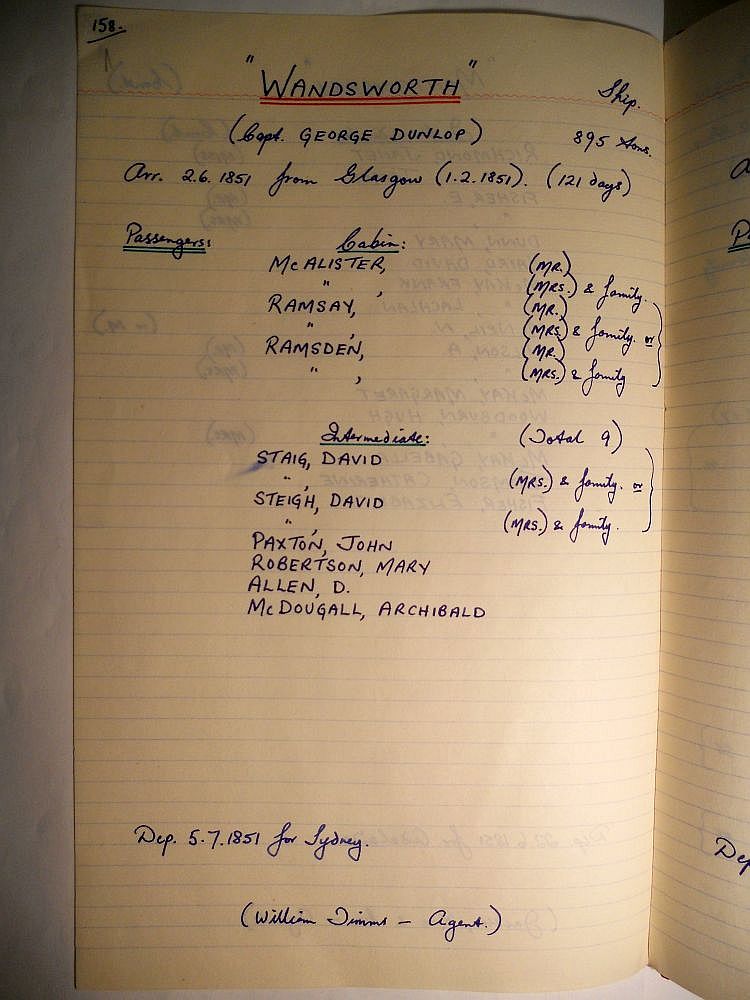 158.
"WANDSWORTH" Ship.
(Capt. GEORGE DUNLOP) 895 tons.
Arr. 2.6.1851 from Glasgow (1.2.1851). (121 days)
Passengers: Cabin:
McALISTER, (MR.)
" , (MRS.) & family.
RAMSAY, (MR.)
" , (MRS.) & family. or
RAMSDEN, (MR.)
" , (MRS.) & family
Intermediate: (Total 9)
STAIG, DAVID
" , (MRS.) & family. or
STEIGH, DAVID
" , (MRS.) & family.
PAXTON, JOHN
ROBERTSON, MARY
ALLEN, D.
McDOUGALL, ARCHIBALD
Dep. 5.7.1851 for Sydney.
(William Timms – Agent.)
Dep